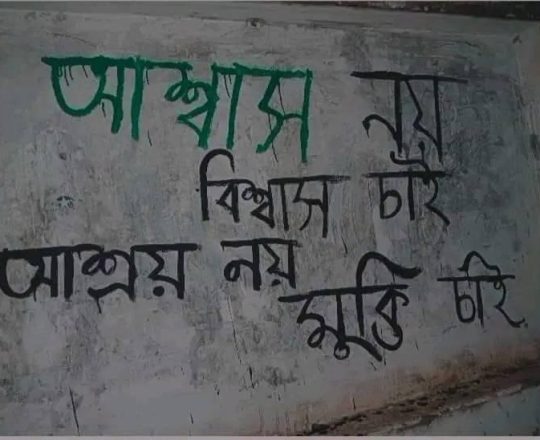 আশ্বাস নয়
বিশ্বাস চাই
আশ্রয় নয়
মুক্তি চাই